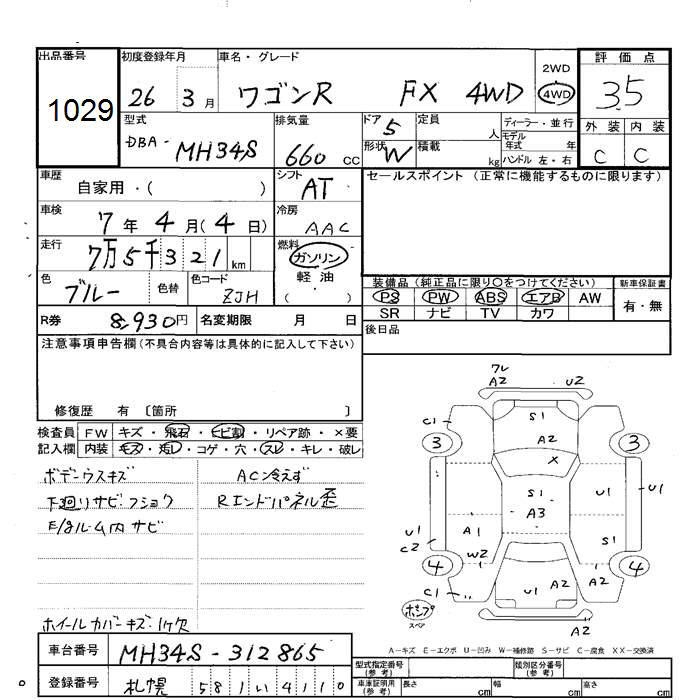 出品番号 初度登録年月 車名・グレード 2WD 評価点
1029 26 3月 ワゴンR FX 4WD 4WD 3.5
型式 排気量 ドア 5 定員 人 ディーラー・並行 外装 内装
DBA- MH34S 660 CC 形状 W 積載 kg モデル年式 年 ハンドル 左・右 C C
車歴 自家用・( ) シフト AT セールスポイント (正常に機能するものに限ります)
車検 7年 4月(4日) 冷房 AAC
走行 7万5千321km 燃料 ガソリン
色 ブルー 色替 色コード ZJH 軽油・( )
装備品 (純正品に限り○をつけてください) 新車保証書
PS PW ABS エアB AW 有・無
SR ナビ TV カワ
R券 8,930円 名変期限 月 日 後日品
注意事項申告欄(不具合内容等は具体的に記入して下さい)
修復歴 有 〔箇所 〕
検査員 FW キズ・飛石・ヒビ割・リペア跡・×要
記入欄 内装 キズ・汚レ・コゲ・穴・スレ・キレ・破レ
ボデーウスキズ AC冷えず
下廻リサビ・フショク Rエンドパネル歪
E/gルーム内サビ
ホイールカバーキズ・1ケ欠
ワレ
A2 U2
C1 S1
3 A2 3
X
S1 U1 U1
A3
U1 A1 S1
C2 W2
4 4
U1 A2 A2
C1
スペア A2
A-キズ E-エクボ U-凹み W-補修跡 S-サビ C-腐食 XX-交換済
車台番号 MH34S-312865 型式指定番号(参考) 類別区分番号(参考)
登録番号 札幌 581い4110 車庫証明用(参考) 長さ cm 幅 cm 高さ cm